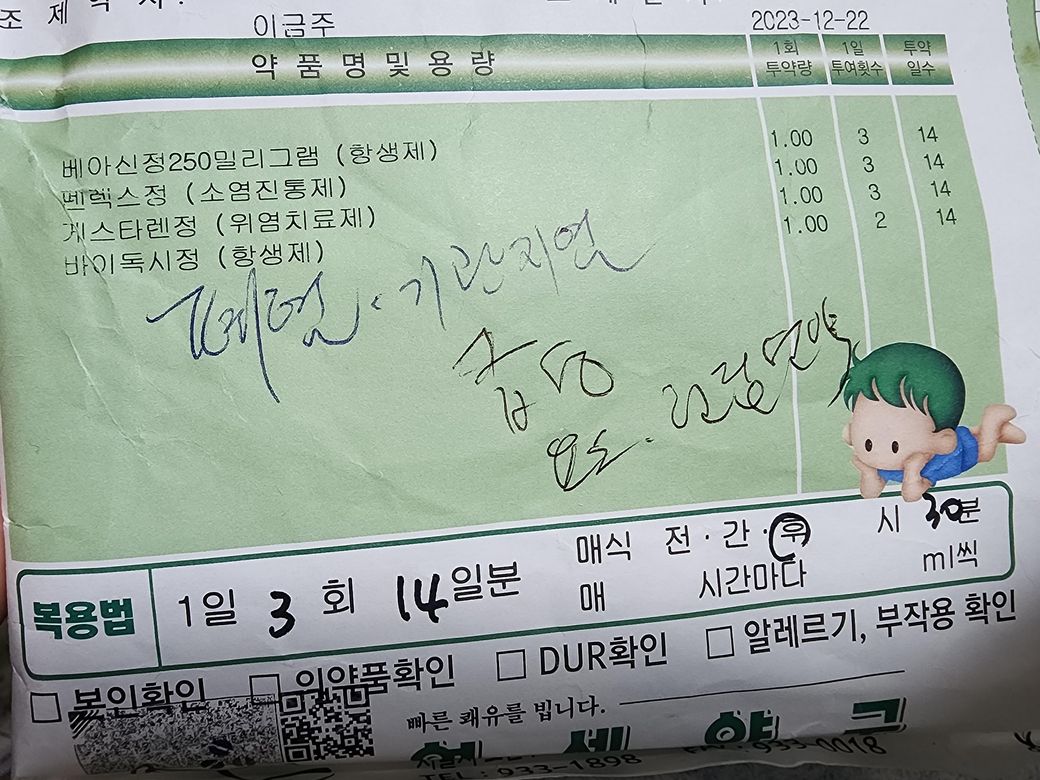 조 제 약 사 :
이금주 2023-12-22
약 품 명 및 용 량 1회 투약량 1일 투여횟수 투약 일수
베아신정250밀리그램 (항생제) 1.00 3 14
펜렉스정 (소염진통제) 1.00 3 14
게스타렌정 (위염치료제) 1.00 3 14
바이독시정 (항생제) 1.00 2 14
폐렴 · 기관지염
복용법 1일 3회 14일분 매식 전 · 간 · 후 시 30분
매 시간마다 ml씩
□ 본인확인 □ 의약품확인 □ DUR확인 □ 알레르기, 부작용 확인
빠른 쾌유를 빕니다.
TEL : 933-1898 FAX : 933-0018